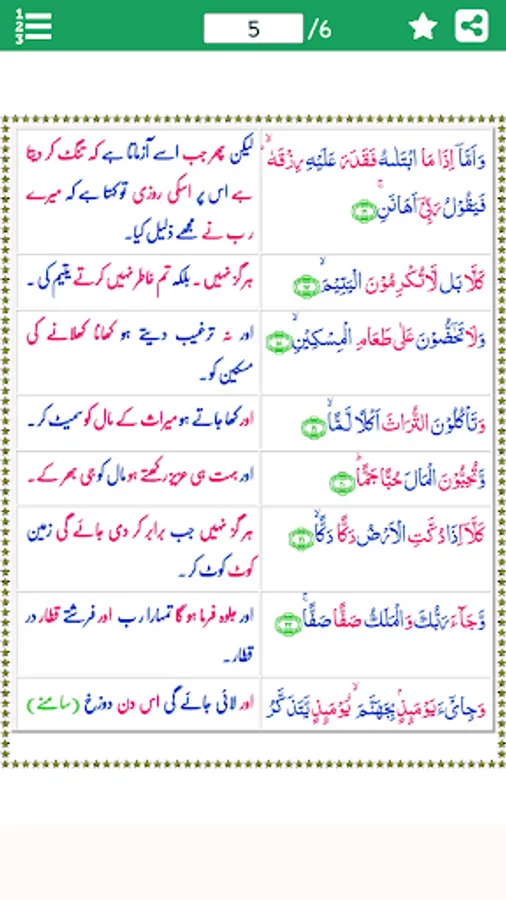 1
2
3
5
/6
وَاَمَّاۤ اِذَا مَا ابْتَلٰىهُ فَقَدَرَ عَلَیْهِ رِزْقَهٗ ۙ۬
فَیَقُوْلُ رَبِّیْۤ اَهَانَنِ ۚ ﴿۱۶﴾
لیکن پھر جب اسے آزماتا ہے کہ تنگ کر دیتا
ہے اس پر اسکی روزی تو کہتا ہے کہ میرے
رب نے مجھے ذلیل کیا۔
كَلَّا بَل لَّا تُكْرِمُوْنَ الْیَتِیْمَ ۙ ﴿۱۷﴾
ہرگز نہیں ۔ بلکہ تم خاطر نہیں کرتے یتیم کی ۔
وَلَا تَحٰٓضُّوْنَ عَلٰی طَعَامِ الْمِسْكِیْنِ ۙ ﴿۱۸﴾
اور نہ ترغیب دیتے ہو کھانا کھلانے کی
مسکین کو۔
وَتَاْكُلُوْنَ التُّرَاثَ اَكْلًا لَّمًّا ۙ ﴿۱۹﴾
اور کھا جاتے ہو میراث کے مال کو سمیٹ کر۔
وَّتُحِبُّوْنَ الْمَالَ حُبًّا جَمًّا ؕ ﴿۲۰﴾
اور بہت ہی عزیز رکھتے ہو مال کو جی بھر کے۔
كَلَّاۤ اِذَا دُكَّتِ الْاَرْضُ دَكًّا دَكًّا ۙ ﴿۲۱﴾
ہرگز نہیں جب برابر کر دی جائے گی زمین
کوٹ کوٹ کر۔
وَّجَآءَ رَبُّكَ وَالْمَلَكُ صَفًّا صَفًّا ۚ ﴿۲۲﴾
اور جلوہ فرما ہو گا تمہارا رب اور فرشتے قطار در
قطار۔
وَجِایْٓءَ یَوْمَىِٕذٍۭ بِجَهَنَّمَ ۙ۬ یَوْمَىِٕذٍ یَّتَذَكَّرُ
اور لائی جائے گی اس دن دوزخ (سامنے)